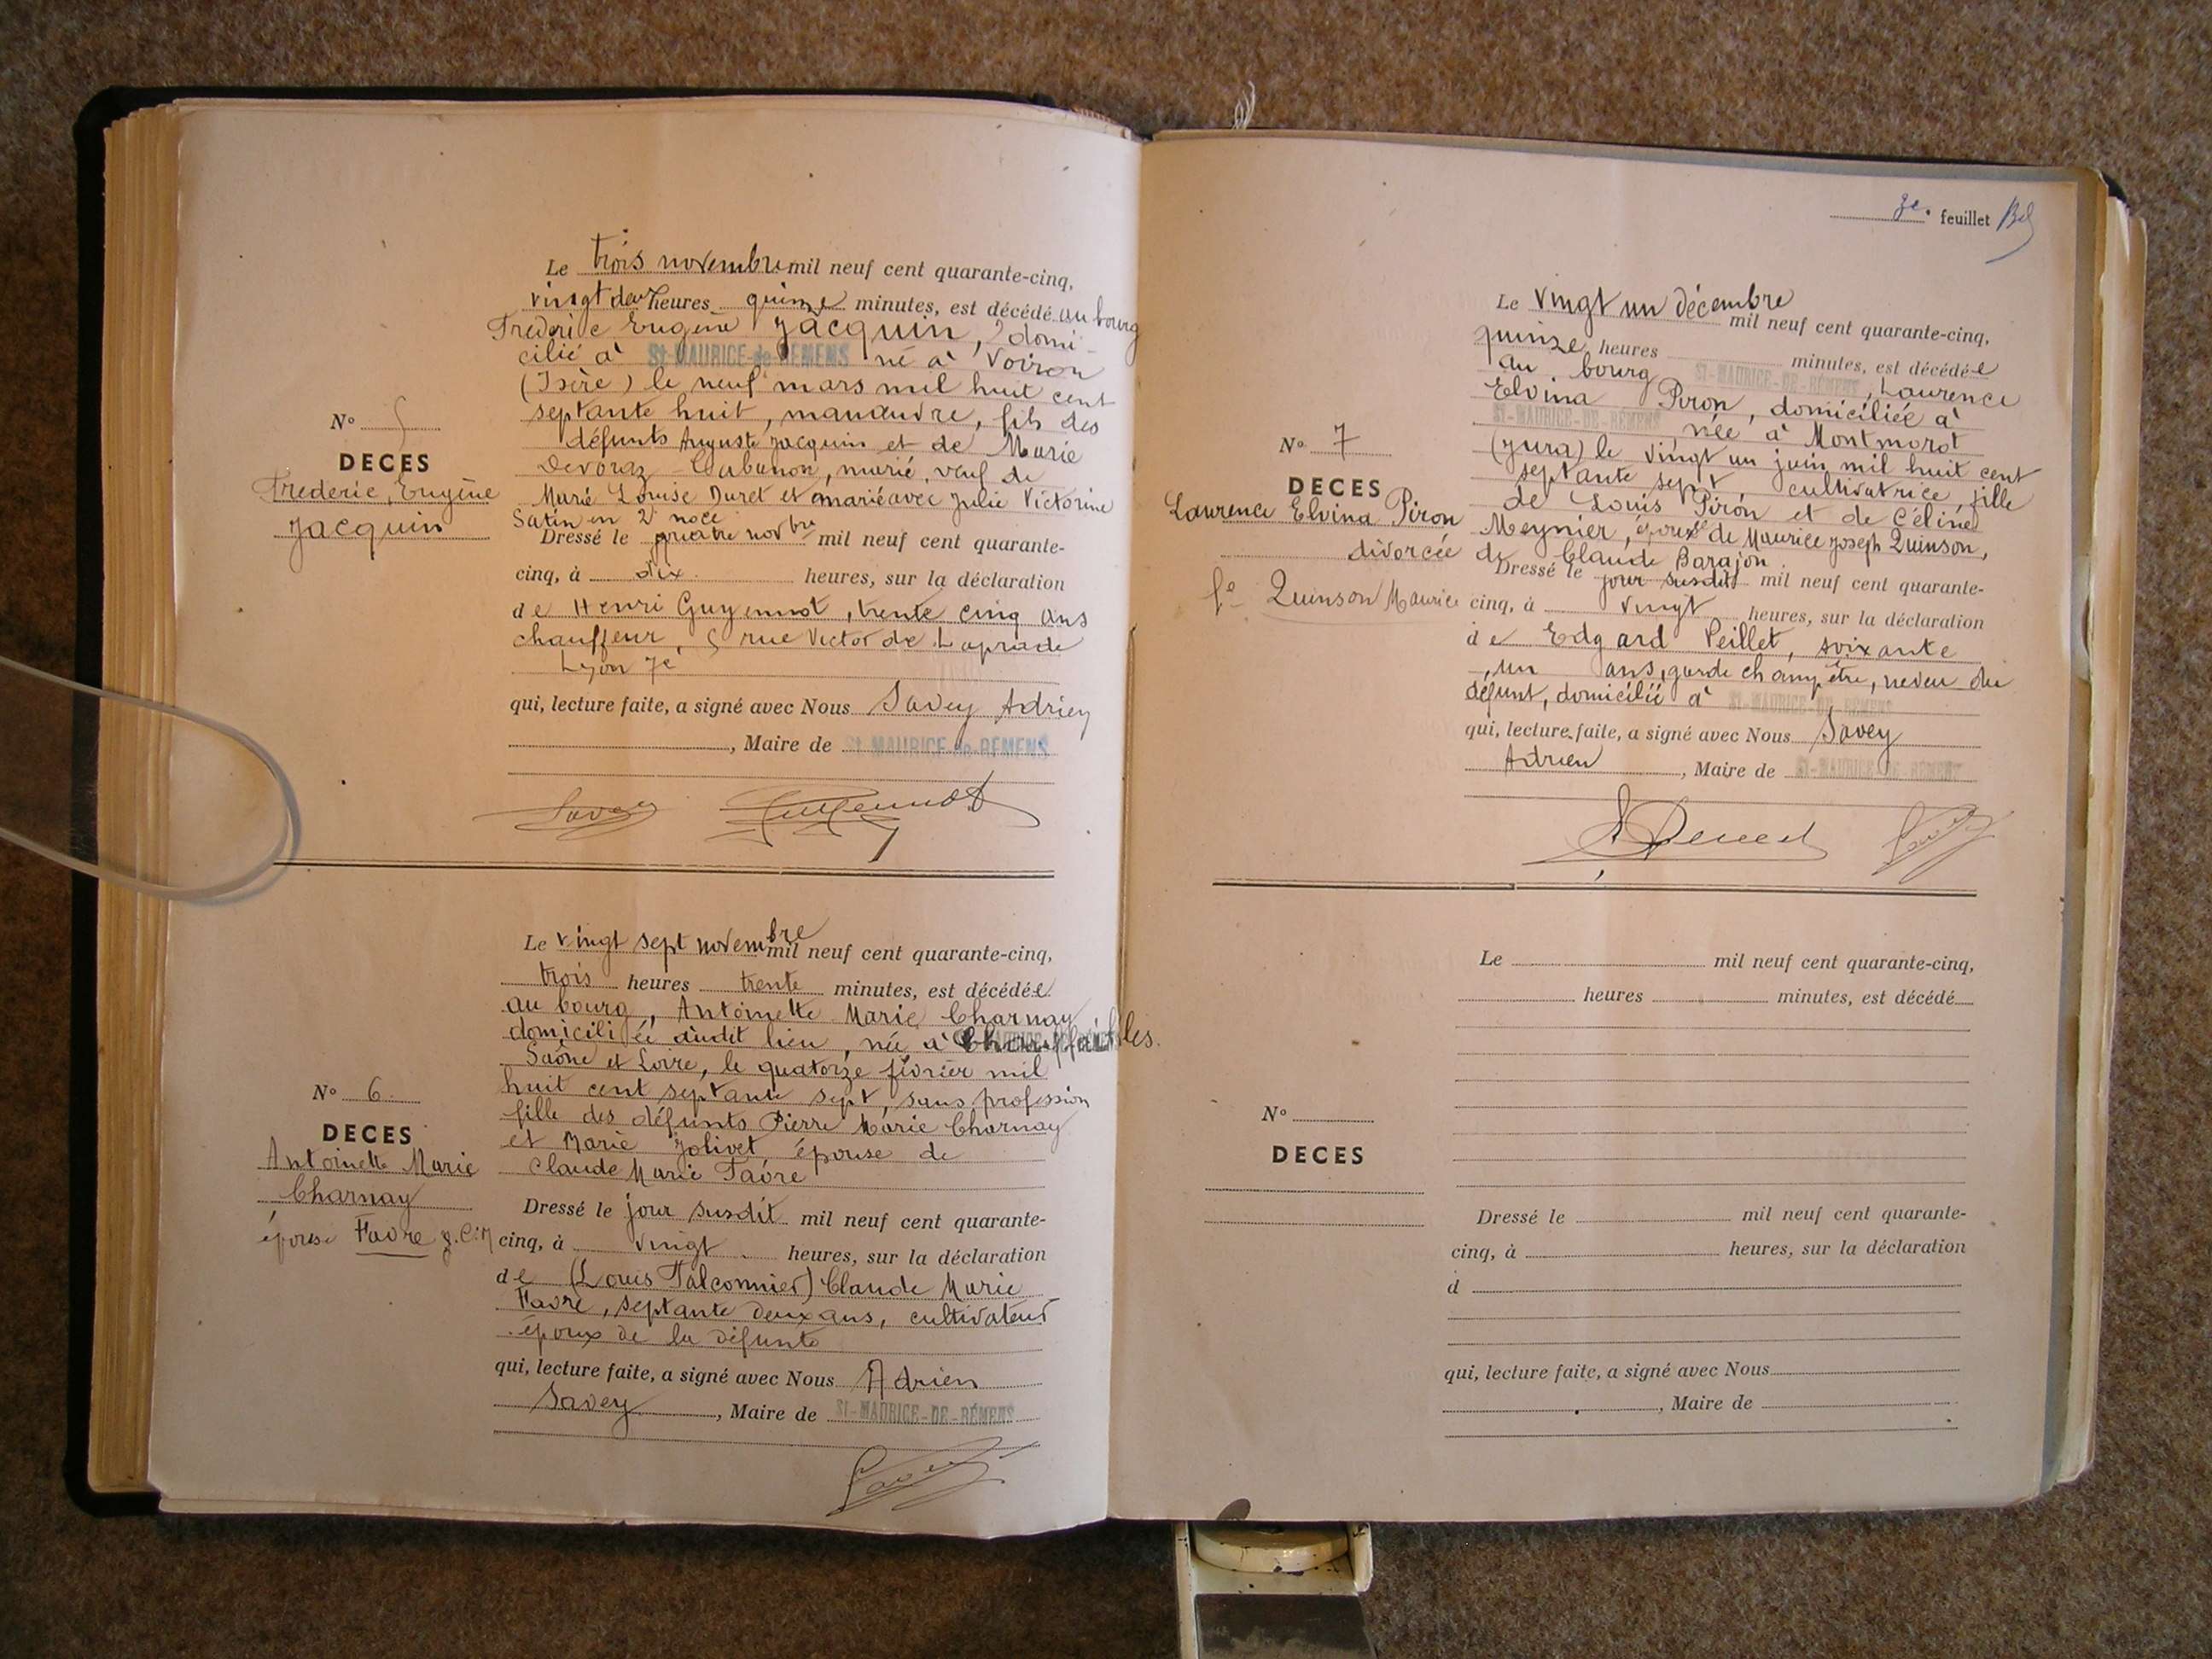 Le trois novembre mil neuf cent quarante-cinq,
vingt deux heures quinze minutes, est décédé au bourg
Frederic Eugène Jacquin, domi-
cilié à St MAURICE-de-RÉMENS né à Voiron
(Isère) le neuf mars mil huit cent
septante huit, manœuvre, fils des
défunts Auguste Jacquin et de Marie
marié, veuf de
Marie Louise Duret et marié avec Julie Victorine
Satin en 2e noce
N° 5
DECES
Frederic, Eugène
Jacquin
Dressé le quatre novbre mil neuf cent quarante-
cinq, à dix heures, sur la déclaration
de Henri Guyennot, trente cinq ans
chauffeur, 5 rue Victor de Laprade
Lyon 7e
qui, lecture faite, a signé avec Nous Savey Adrien
, Maire de St MAURICE-de-RÉMENS
Savey Guyennot
Le vingt sept novembre mil neuf cent quarante-cinq,
trois heures trente minutes, est décédée
au bourg, Antoinette Marie Charnay
domiciliée audit lieu, née à Chauffailles.
Saône et Loire, le quatorze février mil
huit cent septante sept, sans profession
fille des défunts Pierre Marie Charnay
et Marie Jolivet, épouse de
Claude Marie Favre
N° 6.
DECES
Antoinette Marie
Charnay
épouse Favre
Dressé le jour susdit mil neuf cent quarante-
cinq, à vingt heures, sur la déclaration
de (Louis Falconnier) Claude Marie
Favre, septante deux ans, cultivateur
époux de la défunte
qui, lecture faite, a signé avec Nous Adrien
Savey, Maire de ST-MAURICE-DE-RÉMENS
Savey
3e. feuillet
Le vingt un décembre mil neuf cent quarante-cinq,
quinze heures minutes, est décédée
au bourg ST-MAURICE-DE-RÉMENS, Laurence
Elvina Piron, domiciliée à
ST-MAURICE-DE-RÉMENS née à Montmorot
(Jura) le vingt un juin mil huit cent
septante sept cultivatrice, fille
de Louis Piron et de Céline
Meynier, épouse de Maurice Joseph Quinson,
divorcée de Claude Barajon.
N° 7
DECES
Laurence Elvina Piron
fe Quinson Maurice
Dressé le jour susdit mil neuf cent quarante-
cinq, à vingt heures, sur la déclaration
de Edgard Peillet, soixante
un ans, garde champêtre, neveu du
défunt, domicilié à ST-MAURICE-DE-RÉMENS
qui, lecture faite, a signé avec Nous Savey
Adrien, Maire de ST-MAURICE-DE-RÉMENS
Savey
Le mil neuf cent quarante-cinq,
heures minutes, est décédé
N°
DECES
Dressé le mil neuf cent quarante-
cinq, à heures, sur la déclaration
d
qui, lecture faite, a signé avec Nous
, Maire de